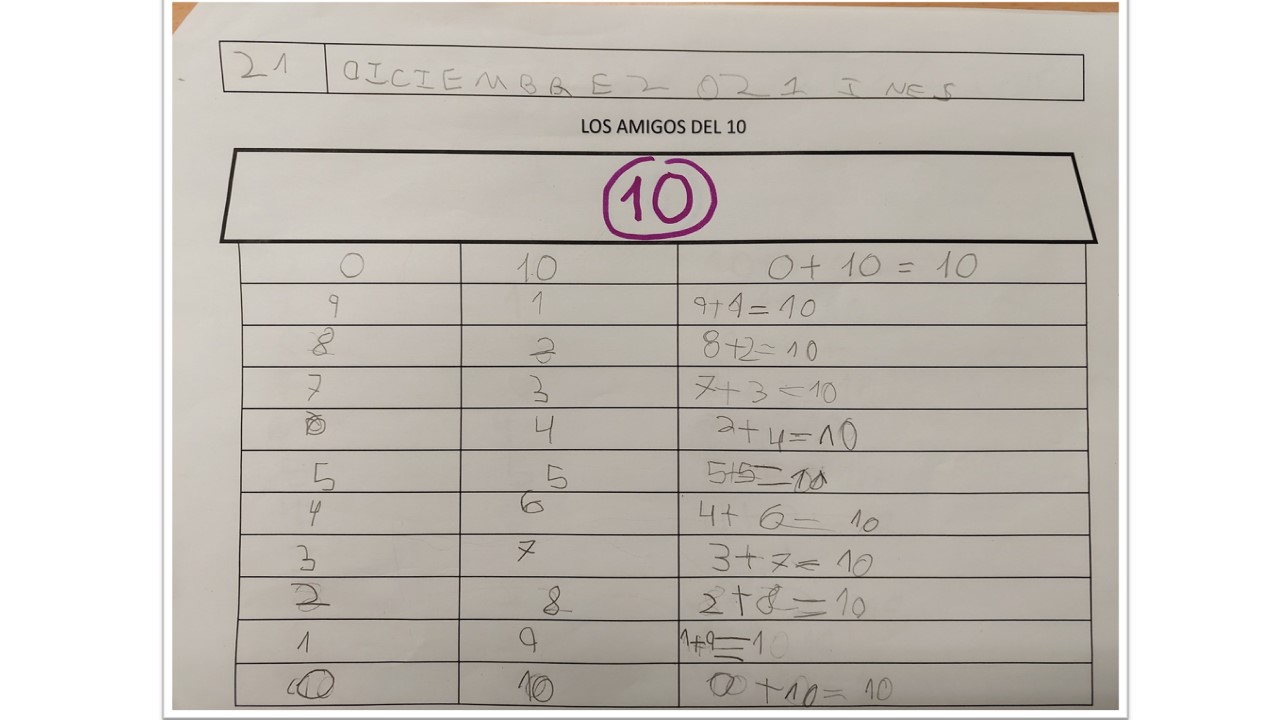 21 DICIEMBRE 2021 INES
LOS AMIGOS DEL 10
10
0 10 0 + 10 = 10
9 1 9+1=10
8 2 8+2=10
7 3 7+3=10
4 2+4=10
5 5 5+5=10
4 6 4+6=10
3 7 3+7=10
2 8 2+8=10
1 9 1+9=10
10 0+10=10